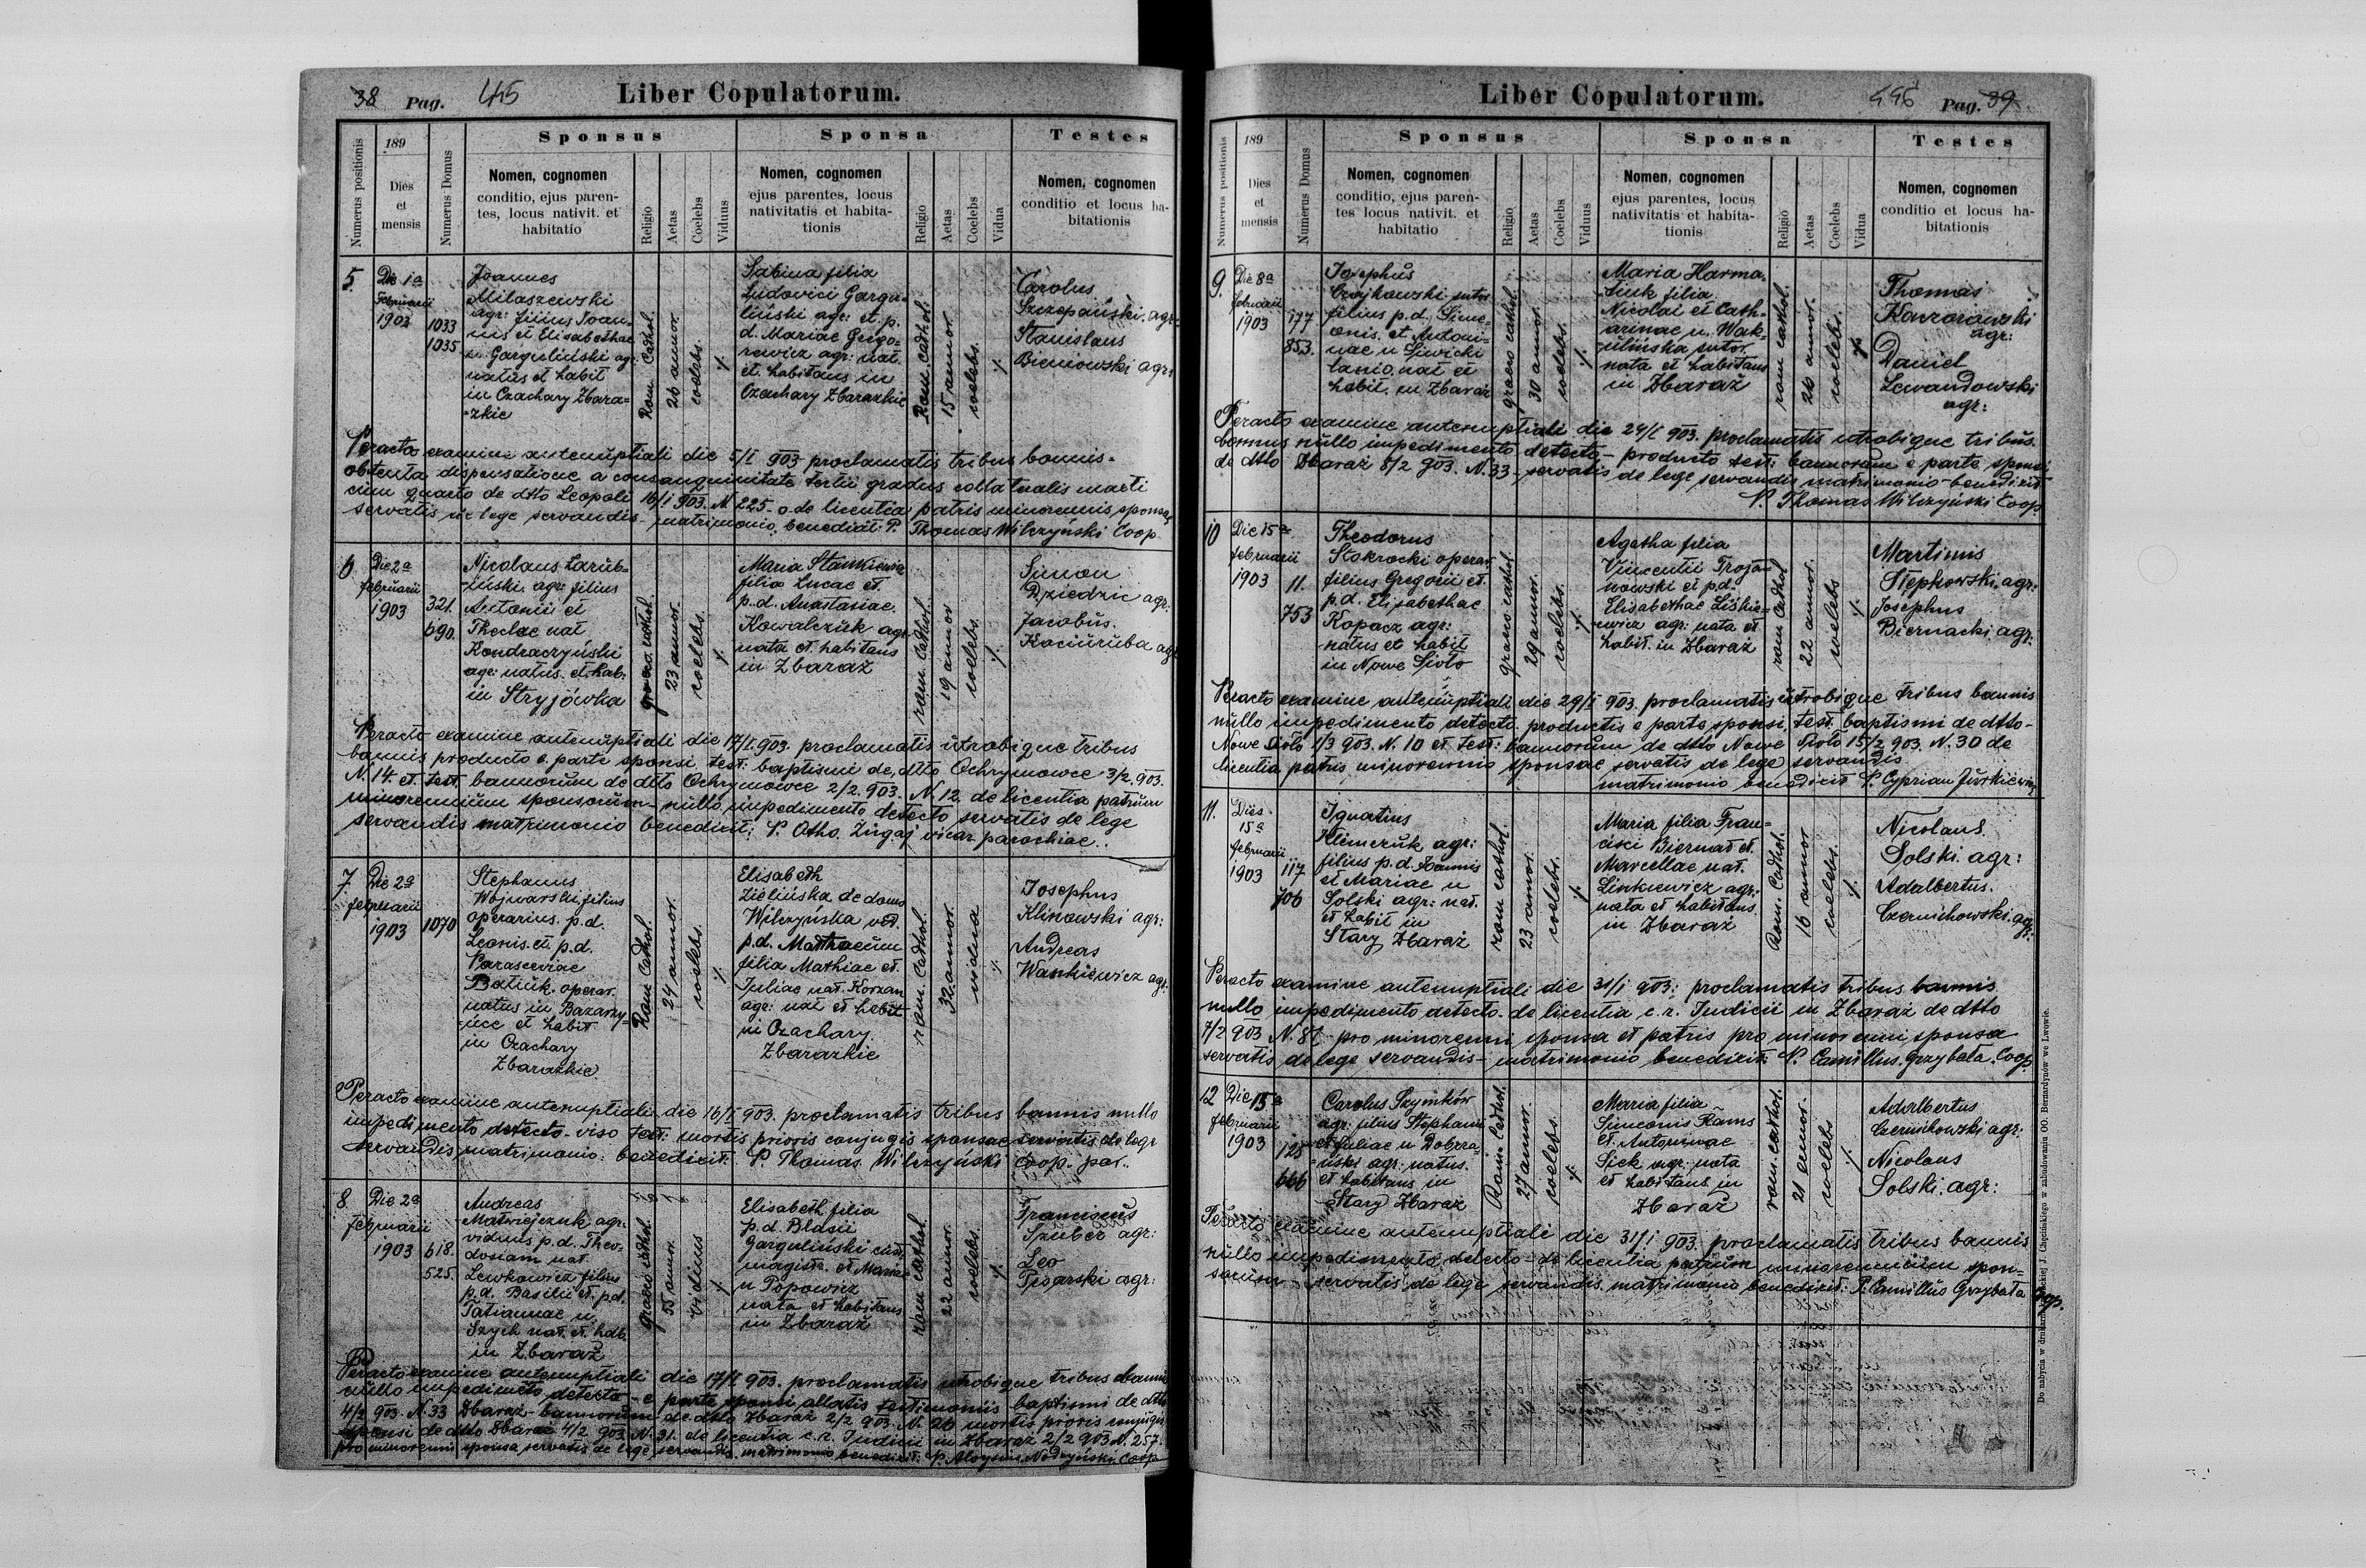 38 Pag. 445
Liber Copulatorum.
Numerus positionis
189
Dies
et
mensis
Numerus Domus
Sponsus
Nomen, cognomen
conditio, ejus paren-
tes, locus nativit. et
habitatio
Religio
Aetas
Coelebs
Viduus
Sponsa
Nomen, cognomen
ejus parentes, locus
nativitatis et habita-
tionis
Religio
Aetas
Coelebs
Vidua
Testes
Nomen, cognomen
conditio et locus ha-
bitationis
5.
Die 1a
Februarii
1903
1033
1035
Joannes
Milaszewski
agr: filius Joan-
nis et Elisabethae
n. Garguliński agr:
natus et habit
in Czachary Zbara=
=zkie
Rom. Cathol.
26 annor.
coelebs.
Sabina filia
Ludovici Gargu=
liński agr: et p.
d. Mariae Grigo=
rowicz agr: nat.
et habitans in
Czachary Zbarazkie
Rom. cathol.
15 annor.
coelebs.
Carolus
Szczepański. agr:
Stanislaus
Bieniowski agr:
Peracto examine antenuptiali die 5/I 903 proclamatis tribus bannis-
obtenta dispensatione a consanguinitate tertii gradus collateralis mixti
cum quarto de dtto Leopoli 16/I 903. N. 225 - de licentia patris minorennis sponsae
servatis de lege servandis - matrimonio benedixit P. Thomas Wilczyński Coop.
6
Die 2a
februarii
1903
321.
690.
Nicolaus Zarub-
iński agr: filius
Antonii et
Theclae nat
Kondraczyński
agr: natus et hab:
in Stryjówka
graeco cathol.
23 annor
coelebs.
Maria Stankiewicz
filia Lucae et
p.d. Anastasiae
Kowalczuk agr
nata et habitans
in Zbaraż
rom. Cathol.
19 annor
coelebs.
Simon
Dziedzic agr:
Jacobus.
Kaciuruba agr
Peracto examine antenuptiali die 17/I 903. proclamatis utrobique tribus
bannis producto e parte sponsi test: baptismi de dtto Ochrymowce 3/2 903.
N. 14. et test. bannorum de dtto Ochrymowce 2/2 903. N. 12. de licentia patrum
minorennium sponsorum - nullo impedimento detecto servatis de lege
servandis matrimonio benedixit: P. Otho. Zirgaj vicar. parochiae.
7.
Die 2a
februarii
1903
1070
Stephanus
Wojwarski filius
operarius. p.d.
Leonis et p.d.
Parasceviae
Batiuk. operar.
natus in Bazarzy=
ńce et habit
in Czachary
Zbarazkie.
Rom Cathol.
24 annor.
coelebs.
Elisabeth
Zielińska de domo
Wilczyńska vid.
p.d. Mathaeum
filia Mathiae et
Juliae nat. Korzan
agr: nat et habit
in Czachary
Zbarazkie
rom. Cathol.
32. annor.
vidua
Josephus
Klinowski agr:
Andreas
Wankiewicz agr.
Peracto examine antenuptiali die 16/I 903. proclamatis tribus bannis nullo
impedimento detecto - viso test: mortis prioris conjugis sponsae servatis de lege
servandis matrimonio: benedixit. P. Thomas Wilczyński Coop. par.
8.
Die 2a
februarii
1903
618.
525.
Andreas
Matwiejczuk agr.
viduus p.d. Theo-
dosiam nat.
Lewkowicz filius
p.d. Basilii et p.d.
Tatiannae n.
Szych nat. et. hab.
in Zbaraż
graeco cathol.
55 annor.
viduus
Elisabeth filia
p.d. Blasii
Garguliński
magistr. et Mariae
n Popowicz
nata et habitans
in Zbaraż
rom cathol.
22 annor.
coelebs.
Franciscus
Szuber agr:
Leo
Pisarski agr:
Peracto examine antenuptiali die 17/I 903. proclamatis utrobique tribus bannis
nullo impedimento detecto - e parte sponsi allatis testimoniis baptismi de dtto
4/2 903. N. 33 Zbaraż - bannorum de dtto Zbaraż 2/2 903. N. 26 mortis prioris conjugis
sponsi de dtto Zbaraż 4/2 903. N. 31. de licentia c. r. Judicii in Zbaraż 2/2 903 N. 257.
pro minorenni sponsa servatis de lege servandis matrimonio benedixit. P. Aloysius Nodzyński Coop
Liber Copulatorum.
446 Pag. 39
Numerus positionis
189
Dies
et
mensis
Numerus Domus
Sponsus
Nomen, cognomen
conditio, ejus paren-
tes locus nativit. et
habitatio
Religio
Aetas
Coelebs
Viduus
Sponsa
Nomen, cognomen
ejus parentes, locus
nativitatis et habita-
tionis
Religio
Aetas
Coelebs
Vidua
Testes
Nomen, cognomen
conditio et locus ha-
bitationis
9.
Die 8a
februarii
1903
177
853.
Josephus
Czajkowski sutor
filius p.d. Sime-
onis. et Antoni-
nae n Siwicki
lanio. nat et
habit. in Zbaraż
graeco cathol.
30 annor.
coelebs.
Maria Harma-
tiuk filia
Nicolai et Cath-
arinae n. Wak-
ulińska sutor
nata et habitans
in Zbaraż
rom cathol.
26 annor.
coelebs.
Thomas
Kaczorowski
agr:
Daniel
Lewandowski
agr:
Peracto examine antenuptiali die 24/I 903. proclamatis utrobique tribus.
bannis nullo impedimento detecto - producto test: bannorum e parte sponsi
de dtto Zbaraż 8/2 903. N. 33 - servatis de lege servandis matrimonio benedixit
P. Thomas Wilczyński Coop
10
Die 15a
februarii
1903
11.
753
Theodorus
Stokrocki operar.
filius Gregorii et.
p.d. Elisabethae
Kopacz agr:
natus et habit
in Nowe Sioło
graeco cathol
29 annor.
coelebs.
Agatha filia
Vincentii Troja-
nowski et p.d.
Elisabethae Liskie-
wicz agr: nata et
habit. in Zbaraż
rom Cathol
22 annor.
coelebs
Martinus
Stępkowski. agr:
Josephus
Biernacki agr:
Peracto examine antenuptiali die 29/I 903. proclamatis utrobique tribus bannis
nullo impedimento detecto, productis e parte sponsi test. baptismi de dtto-
Nowe Sioło 1/3 903. N. 10 et test: bannorum de dtto Nowe Sioło 15/2 903. N. 30 de
licentia patris minorennis sponsae servatis de lege servandis
matrimonio benedixit P. Cyprian Jurkiewicz
11.
Dies.
15a
februarii
1903
117
706
Ignatius
Klimczuk agr:
filius p.d. Joannis
et Mariae n
Solski agr: nat.
et habit in
Stary Zbaraż
rom cathol.
23 annor.
coelebs.
Maria filia Fran=
cisci Biernat et.
Marcellae nat.
Linkiewicz agr.
nata et habitans
in Zbaraż
Rom. Cathol.
16 annor.
coelebs.
Nicolaus.
Solski. agr:
Adalbertus.
Czernichowski. agr:
Peracto examine antenuptiali die 31/I 903: proclamatis tribus bannis
nullo impedimento detecto - de licentia c. r. Judicii in Zbaraż de dtto
7/2 903 N. 81 - pro minorenni sponso et patris pro minorenni sponsa
servatis de lege servandis - matrimonio benedixit: P. Camillus. Grzybała. Coop.
12
Die 15a
februarii
1903
128
666
Carolus Szymków
agr: filius Stephani
et Juliae n Dobrza-
ński agr: natus.
et habitans in
Stary Zbaraż
Rom. Cathol.
27 annor.
coelebs.
Maria filia
Simeonis Rams
et Antoninae
Sick agr: nata
et habitans in
Zbaraż
rom. cathol.
21 annor.
coelebs
Adalbertus
Czernichowski agr:
Nicolaus
Solski. agr:
Peracto examine antenuptiali die 31/I 903. proclamatis tribus bannis
nullo impedimento detecto - de licentia patrum minorennium spon=
sorum - servatis de lege servandis matrimonio benedixit: P. Camillus Grzybała
Coop.
Do nabycia w drukarni J. Chęcińskiego w zabudowaniu OO. Bernardynów we Lwowie.